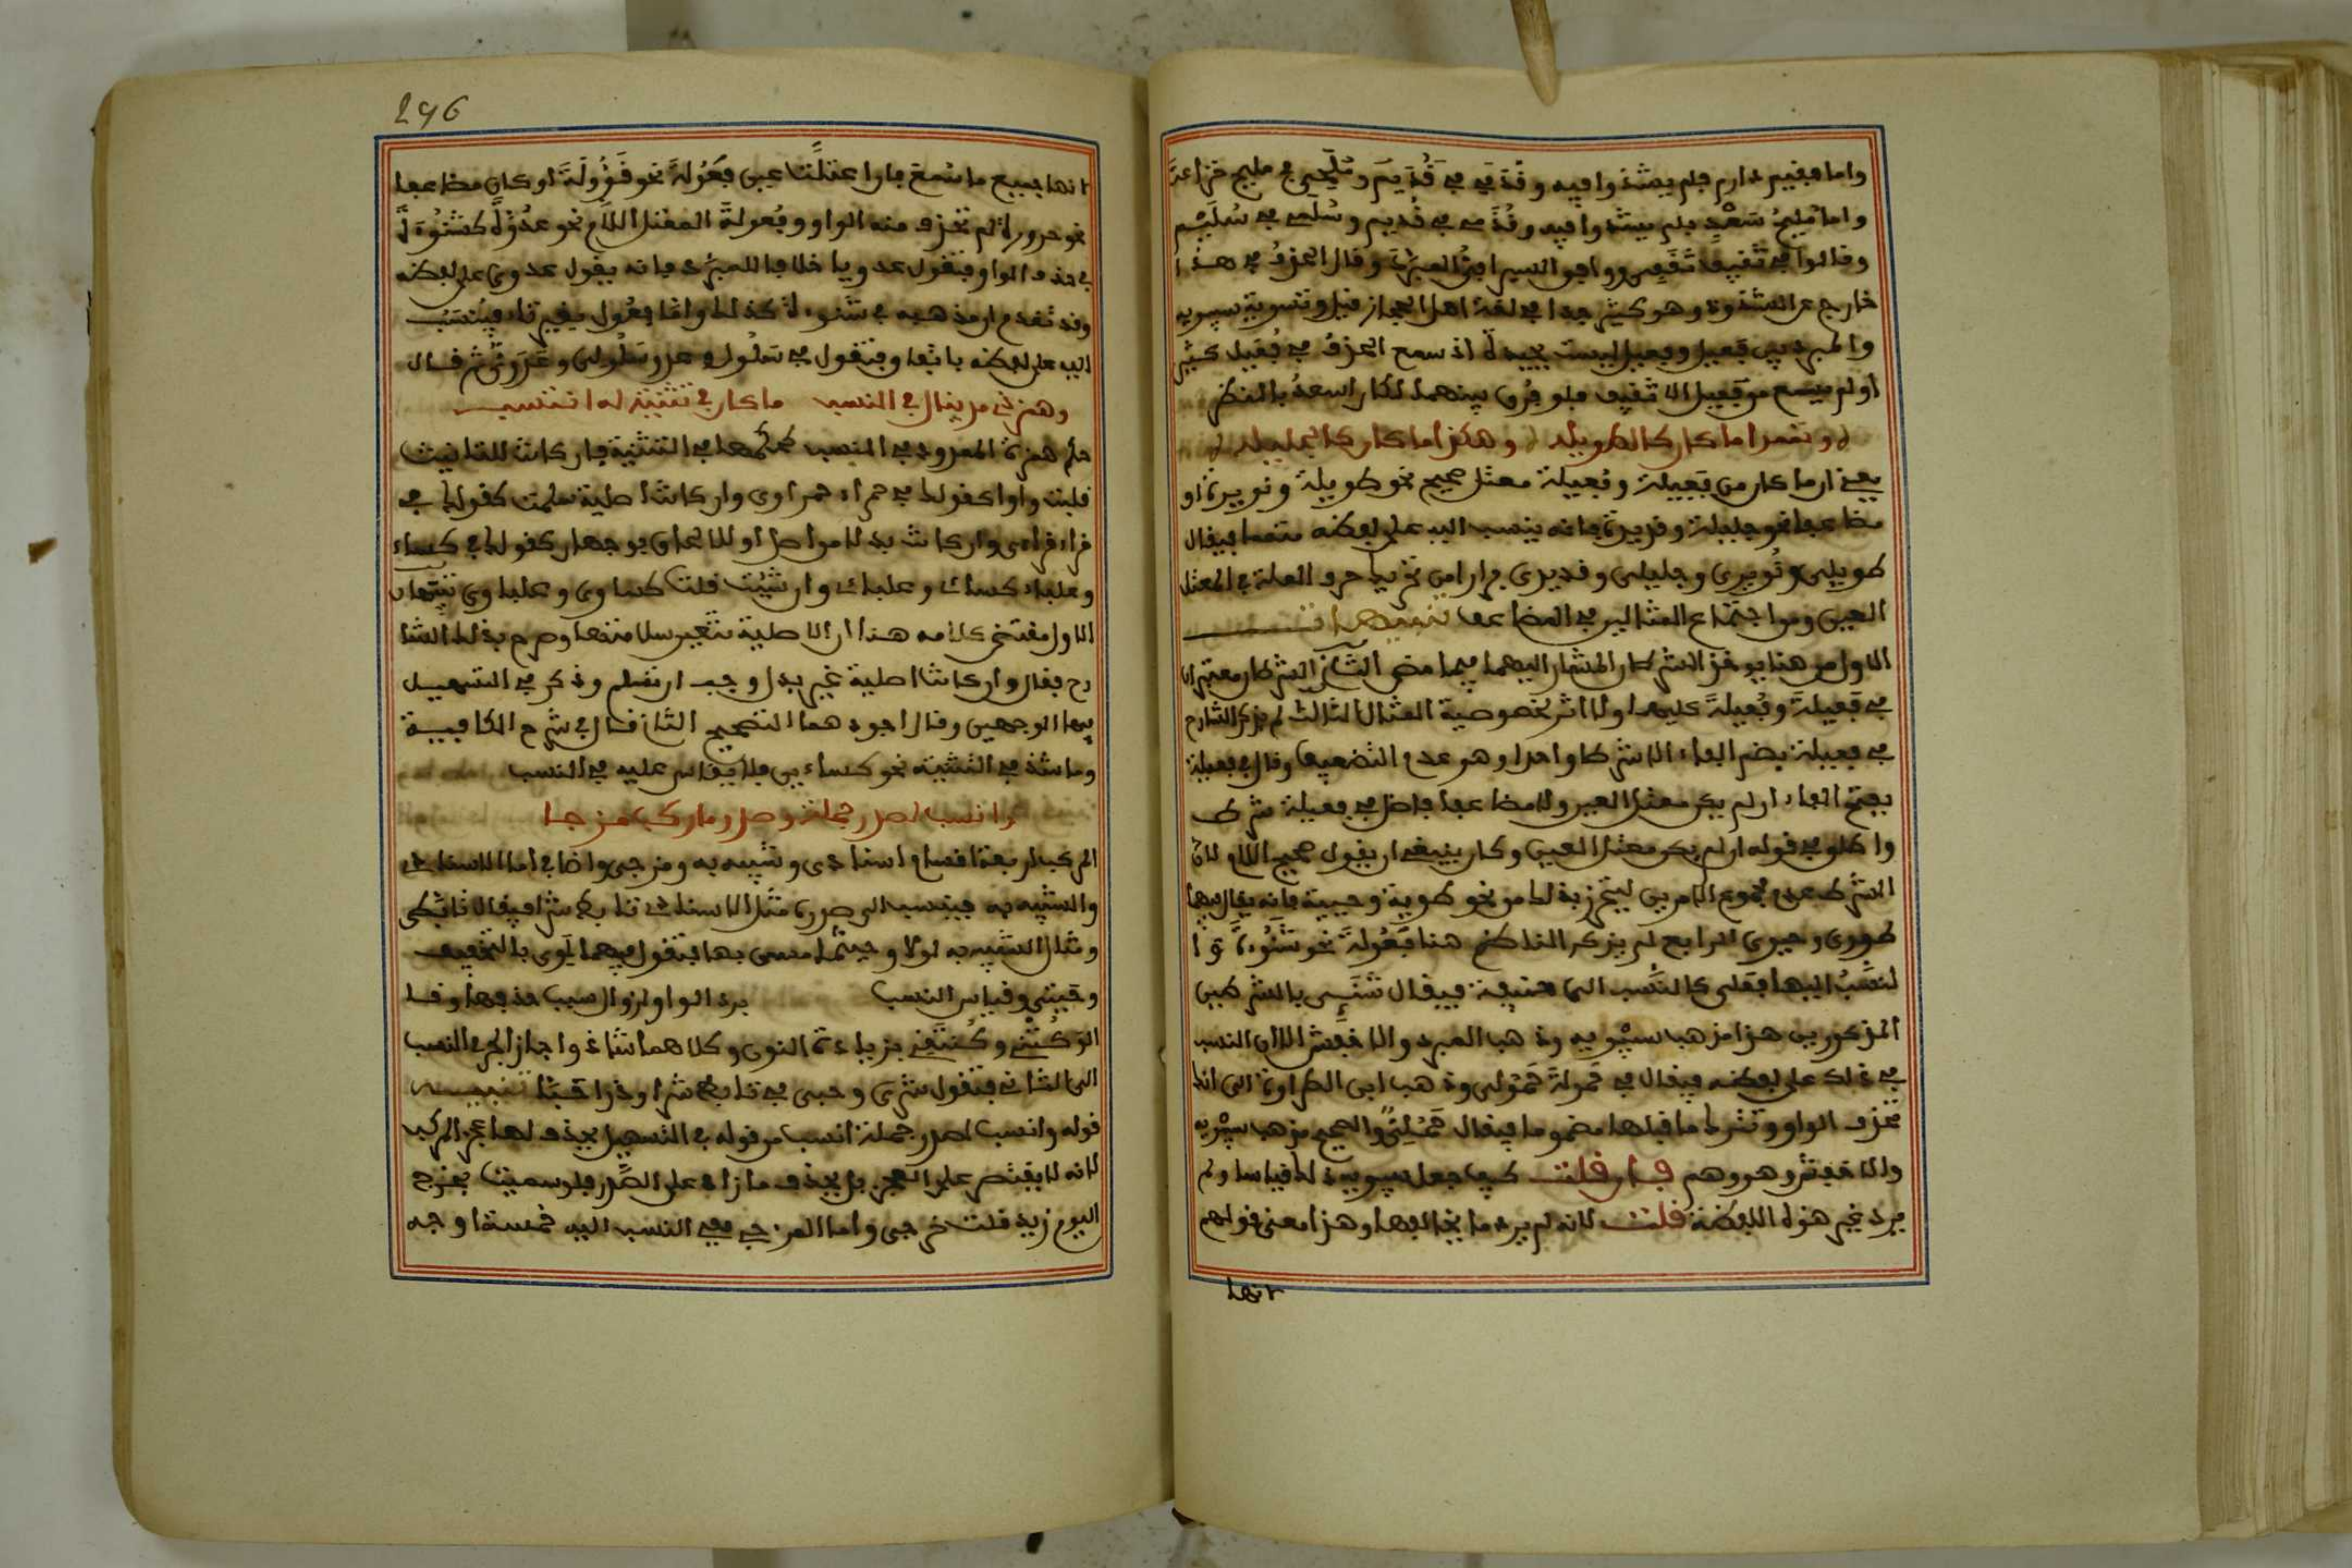 واما فقيم دارم فلم يشذوا فيه و في و مليح خزاعة
واما مليح سعد فلم يشذوا فيه و في قديم وسلمى في سليم
وقالوا في ثقيف ثقفي ووافق السيرافي المبرد وقال الحذف في هذا
خارج عن الشذوذ وهو كثير جدا في لغة اهل الحجاز قيل وتسوية سيبويه
والمبرد بين فعيل وفعيل ليست بجيدة اذ سمع الحذف في فعيل كثير
اولم يسمع من فعيل الا ثقيف فلو فرق بينهما لكان اسعد بالنظر
وتمموا ما كان كالطويله وهكذا ما كان كالجليله
يعني ان ما كان من فعيلة وفعيلة معتل صحيح نحو طويلة ونويرة او
مضاعفا نحو جليلة وقديرة فانه ينسب اليه على لفظه متمما فيقال
طويلي ونويري وجليلي وقديري فرارا من تحريك حرف العلة في المعتل
العين ومن اجتماع المثالين في المضاعف تنبيهات
الاول من هنا يوخذ الشرطان المشار اليهما فيما مضى الثاني الشرطان معتبران
في فعيلة وفعيلة عليهما ولا اثر لخصوصية المثال الثالث لم يذكر الشارح
في فعيلة بضم الفاء الا شرطا واحدا وهو عدم التضعيف وقال في فعيلة
بفتح الفاء ان لم يكن معتل العين ولا مضاعفا فاخل في فعيلة شرط
واطلق في قوله ان لم يكن معتل العين وكان ينبغي ان يقول صحيح اللام لان
الشرط عدم مجموع الامرين ليتحرز بذلك من نحو طوية وحيية فانه يقال فيها
طووي وحيوي الرابع لم يذكر الناظم هنا فعولة نحو شنوءة و ا
لنسب اليها فعلي كالنسب الى حنيفة فيقال شنئي بالشرطين
المذكورين هذا مذهب سيبويه وذهب المبرد والاخفش الى ان النسب
في ذلك على لفظه فيقال في حمولة حمولي وذهب ابن الطراوة الى انك
تحذف الواو وتترك ما قبلها مضموما فيقال حملي والصحيح مذهب سيبويه
والاخفش وهو وهم فان قلت كيف جعل سيبويه ذلك قياسا ولم
يرد غير هذه اللفظة قلت لانه لم يرد ما يخالفها وهذا معنى قولهم
انها
296
انها جميع ما سمع فان اعتلت عين فعولة نحو قوولة او كان مضاعفا
نحو حرورة لم تحذف منه الواو وفعولة المعتل اللام نحو عدوة كشنوءة
في حذف الواو فتقول عدويا خلافا للمبرد فانه يقول عدوي على لفظه
وقد تقدم ان مذهبه في شنوءة كذلك واما فعول بغير تاء فينسب
اليه على لفظه باتفاق فتقول في سلول وعدو سلولي وعدوي ثم قال
وهمز ذي مد ينال في النسب ما كان في تثنية له انتسب
حكم همزة الممدود في النسب كحكمها في التثنية فان كانت للتانيث
قلبت واوا كقولك في حمراء حمراوي وان كانت اصلية سلمت كقولك في
قراء قراءي وان كانت بدلا من اصل او للالحاق فوجهان كقولك في كساء
وعلباء كسائي وعلبائي وان شئت قلت كساوي وعلباوي تنبيهان
الاول مقتضى كلامه هنا ان الاصلية تتعين سلامتها وصرح بذلك الشا
رح فقال وان كانت اصلية غير بدل وجب ان تسلم وذكر في التسهيل
فيها الوجهين وقال اجودهما التصحيح الثاني قال في شرح الكافية
وما شذ في التثنية نحو كسايين فلا يقاس عليه في النسب
وانسب لصدر جملة وصدر ما ركب مزجا
المركب اربعة اقسام اسنادي وشبيه به ومزجي واضافي اما الاسنادي
والشبيه به فينسب الى صدره مثل الاسنادي تابط شرا فيقال تابطي
ومثال الشبيه به لولا وحيثما مسمى بها فتقول فيهما لوي بالتخفيف
وحيثي وقياس النسب برد الواو لزوال سبب حذفها وقد
الوا كنتي وكنتني بزيادة النون وكلاهما شاذ واجاز الجرمي النسب
الى الثاني فتقول شري وحبي في تابط شرا وذرا حبا تنبيه
قوله وانسب لصدر جملة انسب من قوله في التسهيل بحذف لها عجز المركب
لانه لا يقتصر على العجز بل يحذف ما زاد على الصدر فلو سميت بخرج
اليوم زيد قلت خرجي واما المزجي ففي النسب اليه خمسة اوجه